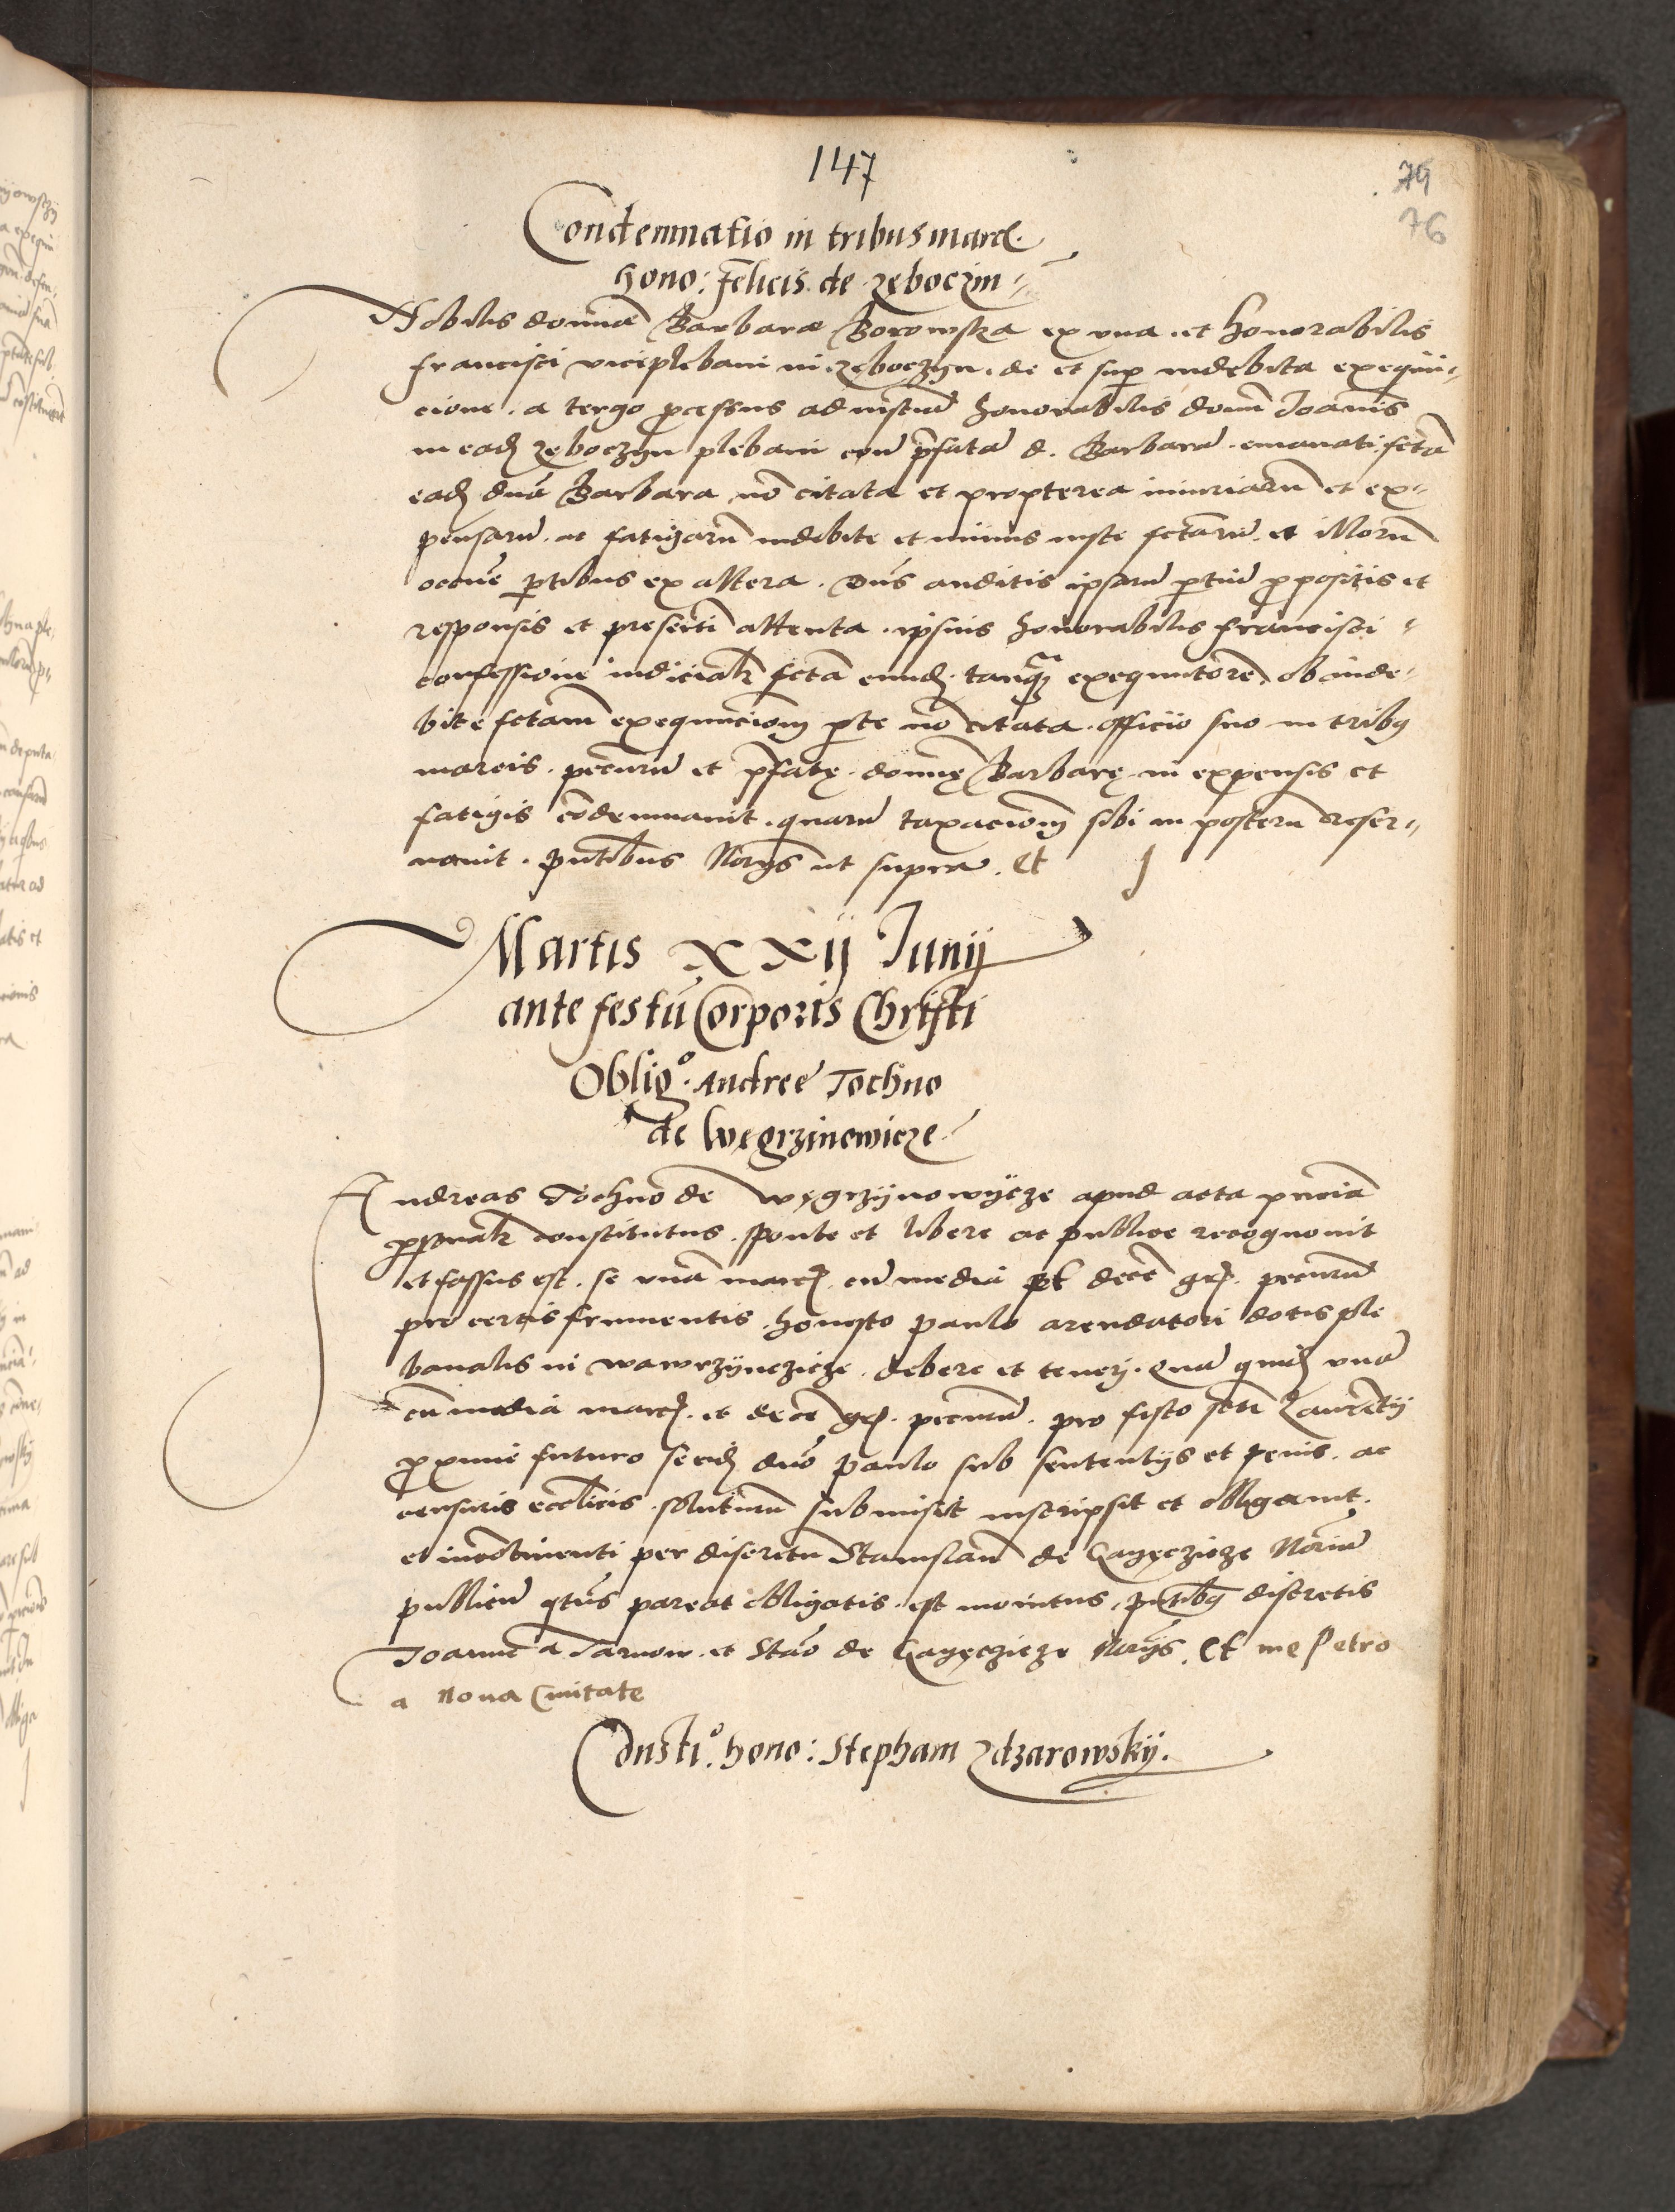 147
79
76
Condemnatio in tribus marc.
hono: Felicis de Zęboczin
Nobilis domina Barbara Borowska ex una et honorabilis
Francisci viceplebani in Zęboczyn de et sup indebita exequu-
cione a tergo pcessus ad instam honorabilis domi Joannis
in ead Zęboczyn plebani con pfata d. Barbara emanati fcta
ead dna Barbara no citata et propterea iniuriaru et ex-
pensaru ac fatigaru indebite et minus iuste fctaru et illoru
occone ptibus ex altera. Dns auditis ipsaru ptiu ppositis et
responsis et presertí attenta ipsius honorabilis Francisci
confessione iudicialr fcta eund tanq exequutore ob inde-
bite fctam exequucionem pte no citata officio suo in tribq
marcis pecuniru et pfatę domnę Barbarę in expensis et
fatigis codemnavit quaru taxacionem sibi in posteru reser-
vauit. pntibus Norijs ut supra. Et
Martis XXij Junij
ante festu Corporis Christi
Oblig.º Andree Tochno
de Węgrzinowicze
Andreas Tochno de Węgrzijnowijcze apud acta pncia
psonalr constitutus sponte et libere ac publice recognouit
et fassus est se una marc cu media et dece gr. pecuniru
pro certis frumentis honesto Paulo arendatori dotis ple
banalis in Wawrzijnczicze debere et teneri. Qua quid una
cu media marc et dece gr. pecuniru pro festo scti Laurētij
pxime futuro se eid dno Paulo sub sententijs et penis ac
censuris ecclicis soluturu submisit inscripsit et obligauit
et incotinenti per discretu Stanislau de Gagęczicze Notariu
publicu qtus pareat obligatis est monitus, pntibq discretis
Joanne a Tarnow et Stao de Gagęczicze Norijs. Et me Petro
a Noua Ciuitate
Consti.º hono: Stephani Zdzarowskij.